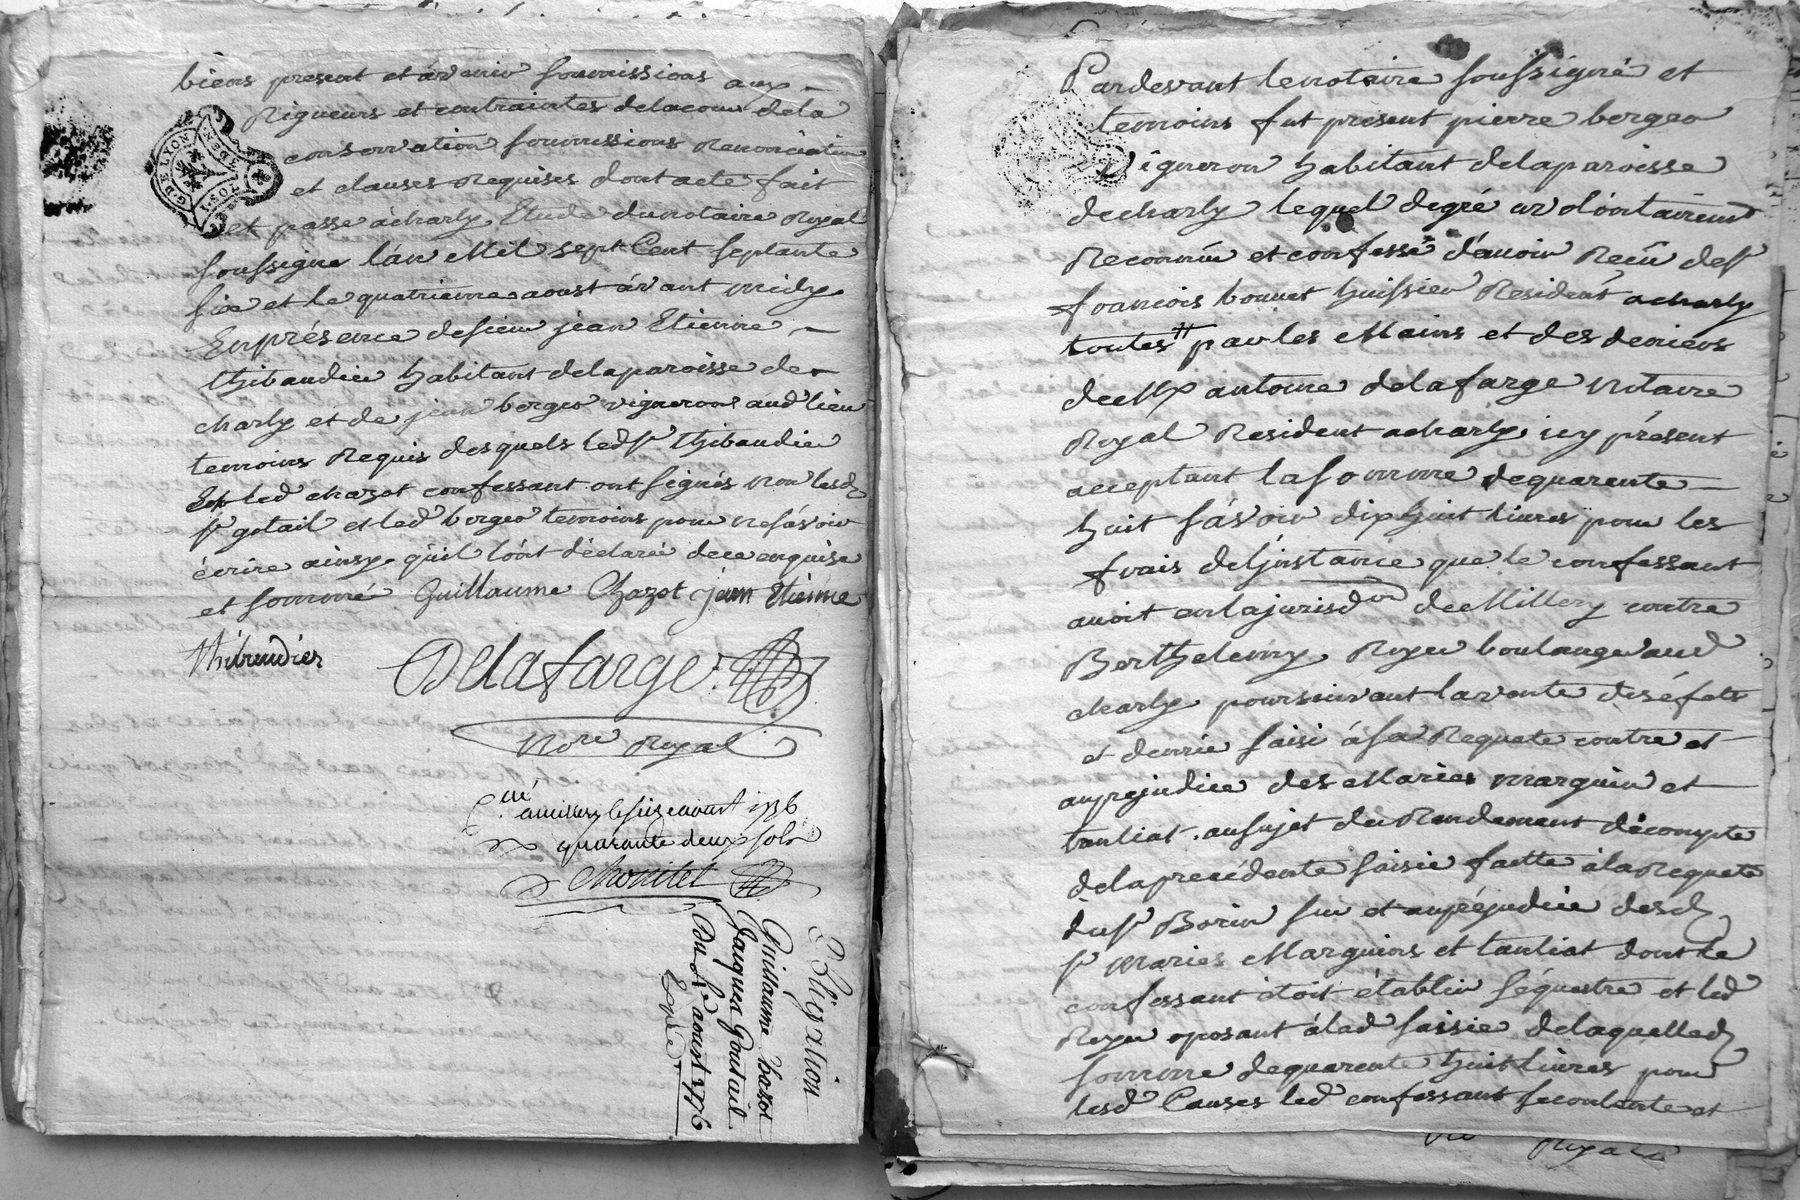 biens present et avenir soumissions aux
Rigueurs et contraintes delacour dela
conservation soumissions Renonciation
et clauses Requises dont acte fait
et passé à charly Etude dunotaire Royal
soussigné l'an Mil sept Cent septante
six et le quatrieme aoust avant midy
Enprésence desieur jean Etienne
thibaudier habitant delaparoisse de
charly et de jean berger vigneron aud lieu
temoins Requis desquels led sr thibaudier
Et led chazot confessant ont signés non lesd
sr gotail et led berger temoins pour nesávoir
écrire ainsy qu'il l'ont déclaré dece enquise
et sommé Guillaume Chazot jean Etienne
thibaudier
Delafarge
Nore Royal
G. DE LYON
cllé amillery le six aoust 1776
quarante deux sols
Obligation
Guillaume hazot
Jacques Goutail
Du 4 aoust 1776
Expée
Pardevant lenotaire soussigné et
temoins fut present pierre berger
Vigneron habitant delaparoisse
decharly lequel degré uvolontairemt
Reconnu et confessé d'avoir Recu desr
francois bonnet huissier Resident acharly
toutes par les Mains et des deniers
de Me antoine delafarge notaire
Royal Resident acharly icy présent
acceptant lasomme dequarente
huit sávoir dix huit livres pour les
frais del'jnstance que le confessant
avoit enlajurisdon deMillery contre
Berthelemy Royer boulanger aud
charly poursuivant lavente des éfets
et denrée saisi àsa Requete contre et
auprejudice des Mariés marguin et
tauliat ausujet du Rendement décompte
delaprecédente saisie faitte àlarequete
dusr Borin sur et aupréjudice desd
sr mariés Marguins et tauliat dont le
confessant étoit établir séquestre et led
Royer oposant àlad saisie delaquelled
somme dequarente huit livres pour
lesd Causes led confessant secontente et
Royal